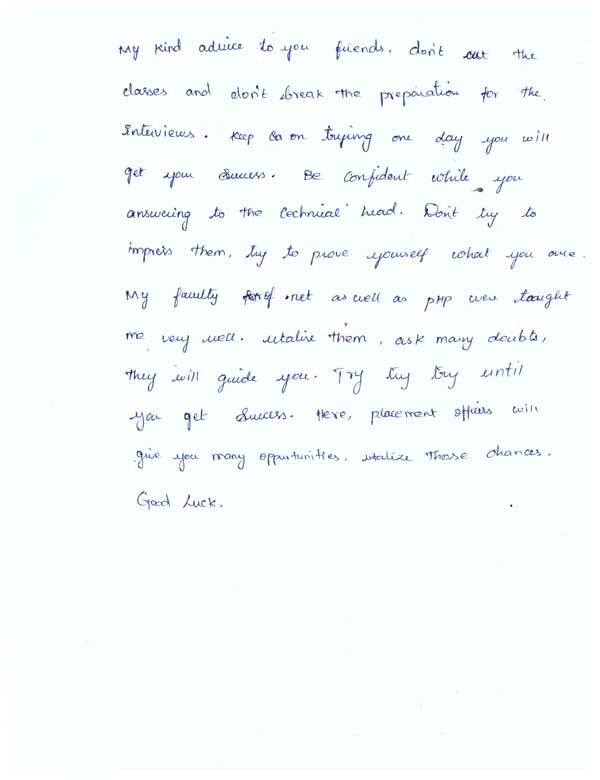 My kind advice to you friends, don't cut the
classes and don't break the preparation for the
Interviews. Keep on trying one day you will
get your Success. Be Confident while you
answering to the technical head. Don't try to
impress them, try to prove yourself what you are.
My faculty of .net as well as PHP were taught
me very well. utalise them, ask many doubts,
they will guide you. Try try try until
you get Success. Here, placement officers will
give you many oppurtunities, utalize those chances.
Good Luck.